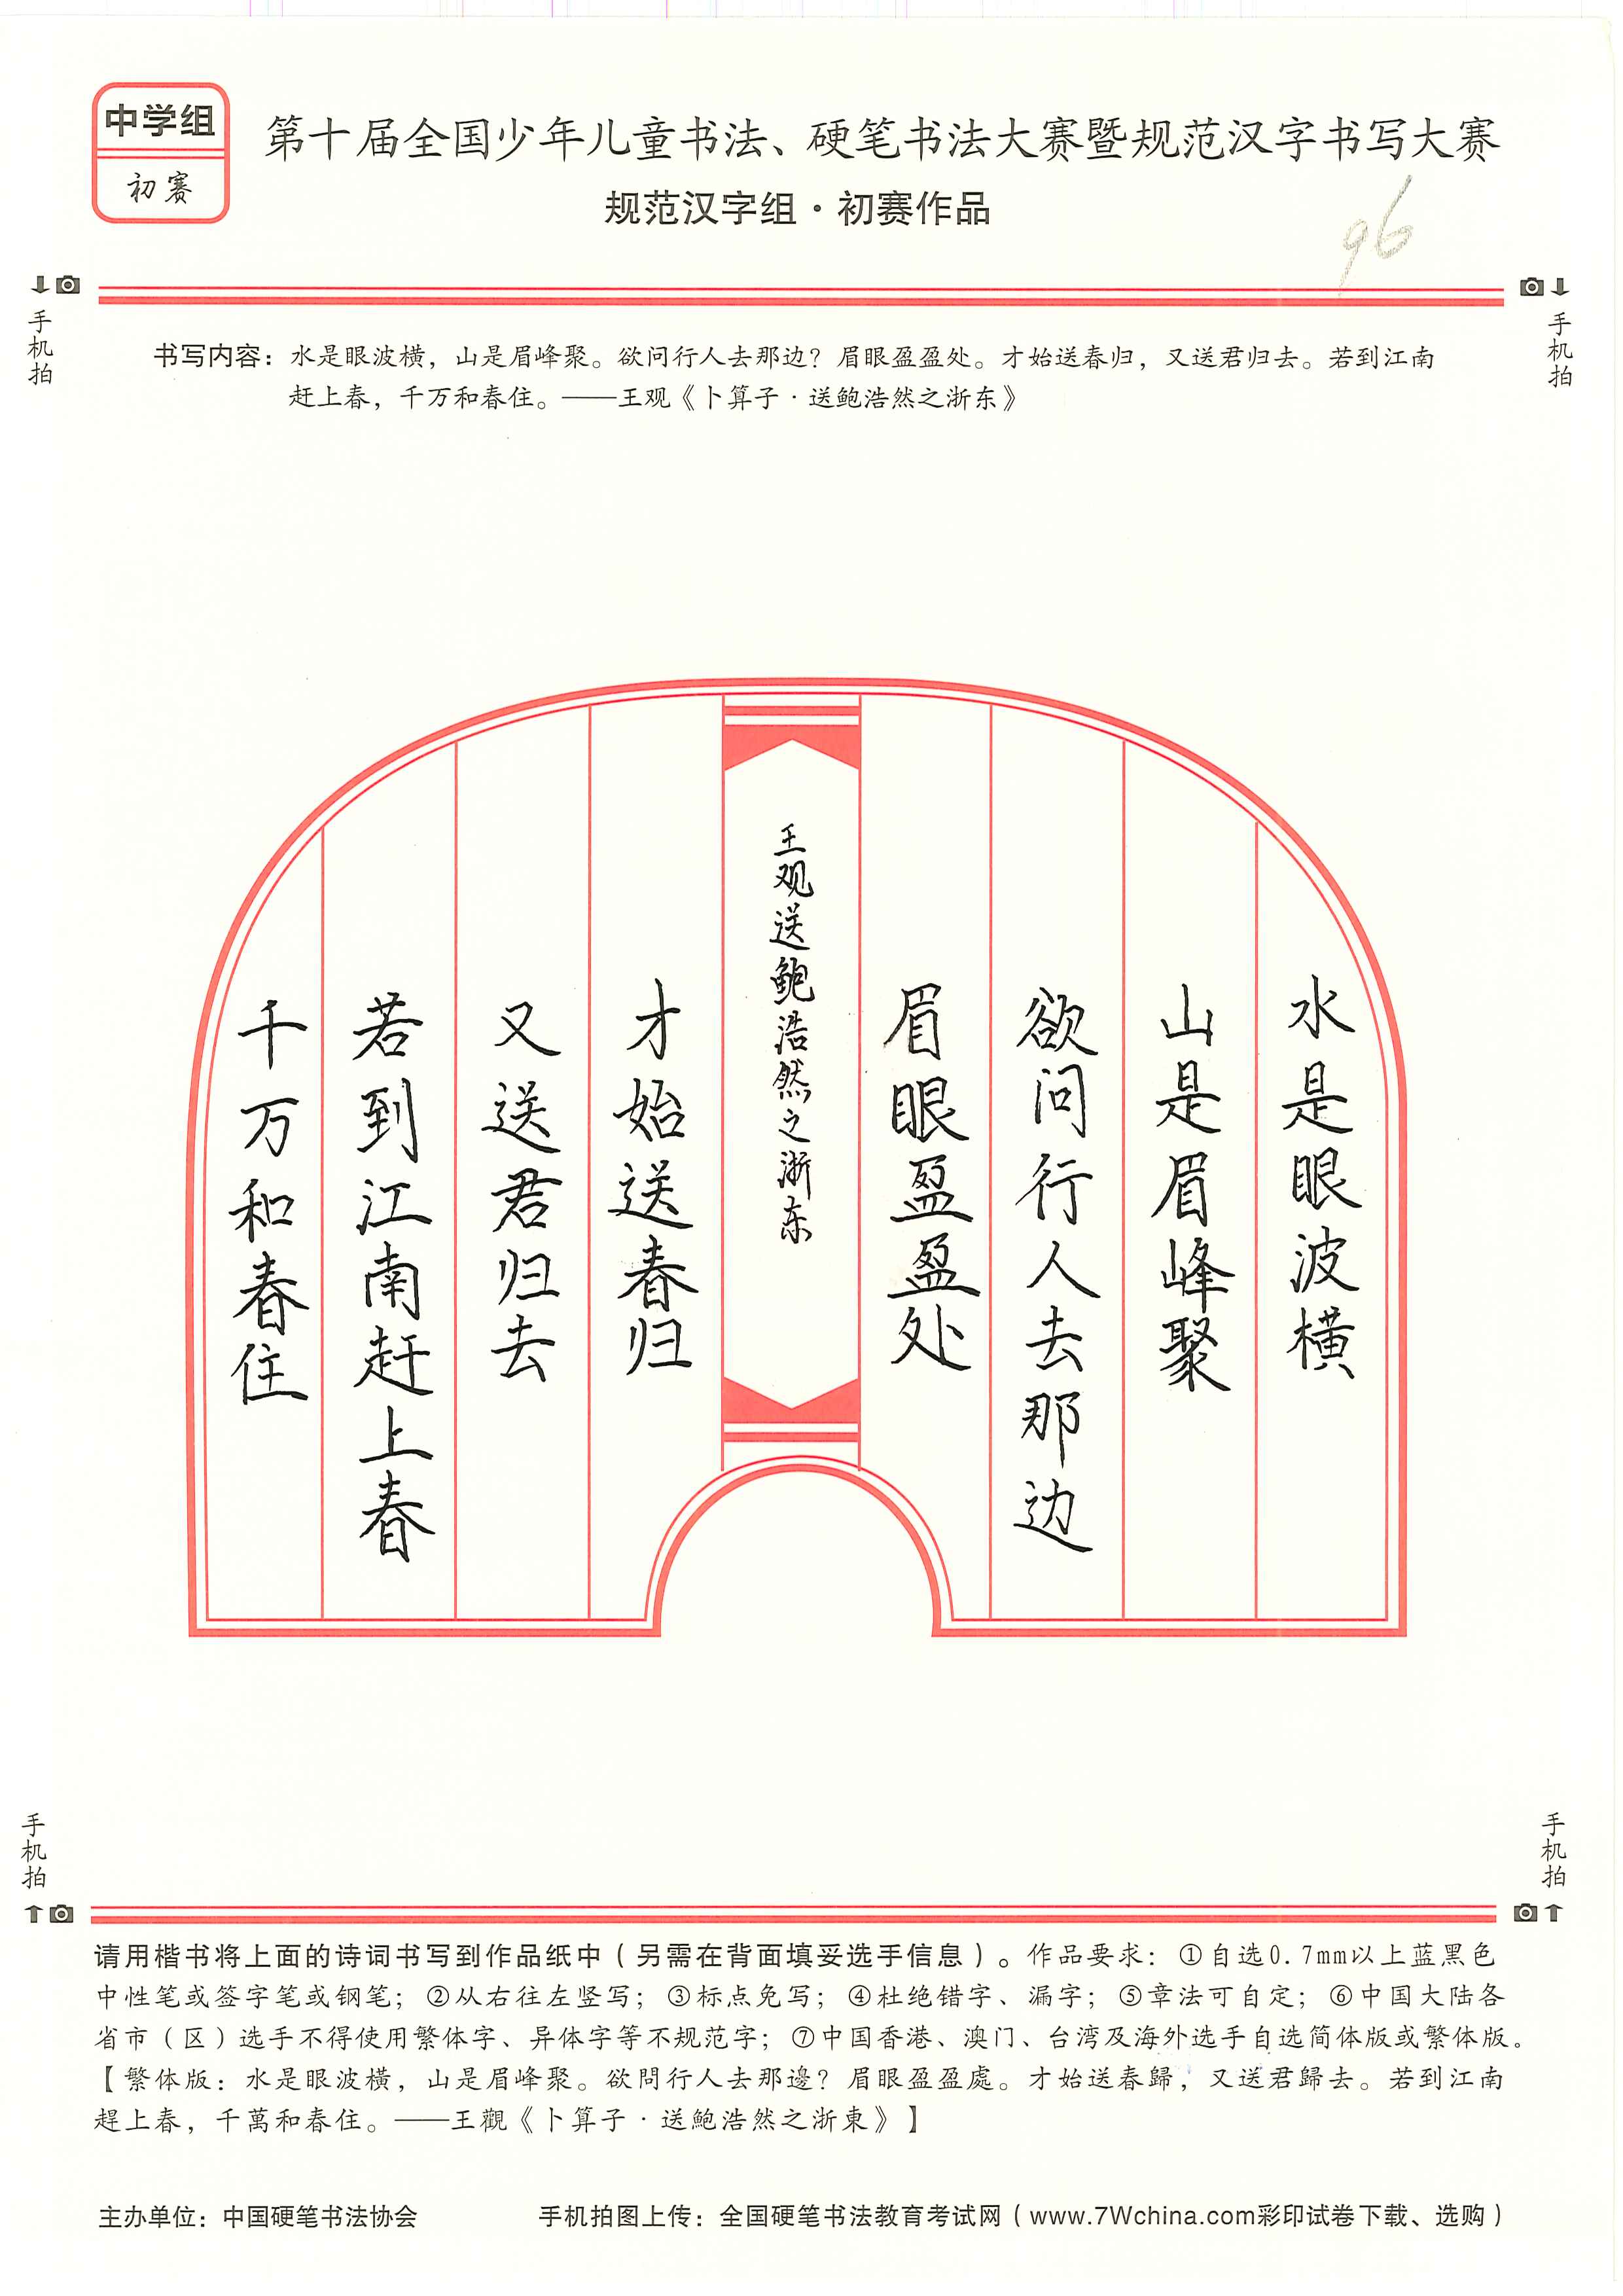 中学组
初赛
第十届全国少年儿童书法、硬笔书法大赛暨规范汉字书写大赛
规范汉字组·初赛作品
96
手机拍
手机拍
书写内容：水是眼波横，山是眉峰聚。欲问行人去那边？眉眼盈盈处。才始送春归，又送君归去。若到江南
赶上春，千万和春住。——王观《卜算子·送鲍浩然之浙东》
水是眼波横
山是眉峰聚
欲问行人去那边
眉眼盈盈处
王观送鲍浩然之浙东
才始送春归
又送君归去
若到江南赶上春
千万和春住
手机拍
手机拍
请用楷书将上面的诗词书写到作品纸中（另需在背面填妥选手信息）。作品要求：①自选0.7mm以上蓝黑色
中性笔或签字笔或钢笔；②从右往左竖写；③标点免写；④杜绝错字、漏字；⑤章法可自定；⑥中国大陆各
省市（区）选手不得使用繁体字、异体字等不规范字；⑦中国香港、澳门、台湾及海外选手自选简体版或繁体版。
【繁体版：水是眼波橫，山是眉峰聚。欲問行人去那邊？眉眼盈盈處。才始送春歸，又送君歸去。若到江南
趕上春，千萬和春住。——王觀《卜算子·送鮑浩然之浙東》】
主办单位：中国硬笔书法协会
手机拍图上传：全国硬笔书法教育考试网（www.7Wchina.com彩印试卷下载、选购）